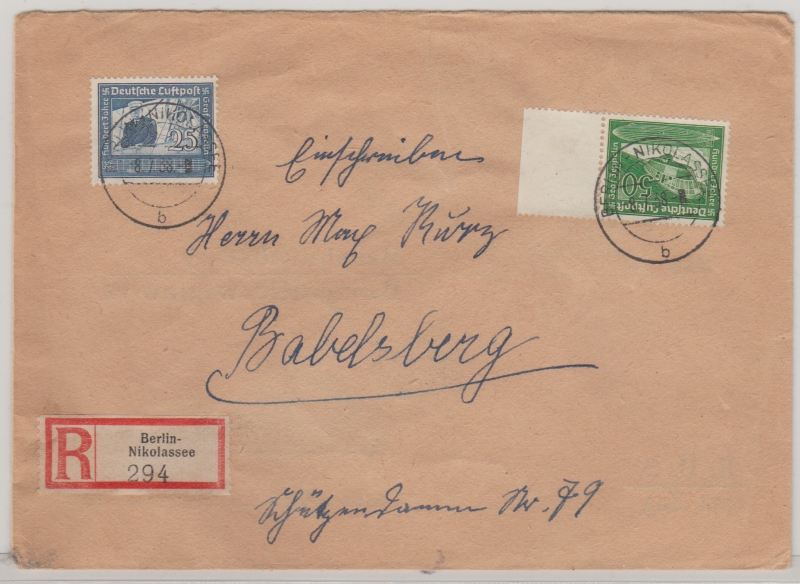 Deutsche Luftpost
Hundert Jahre
Graf Zeppelin
25
NIKOLASSEE
b
Deutsche Luftpost
Hundert Jahre
Graf Zeppelin
50
NIKOLASSEE
b
Einschreiben
Herrn Max Kurz
Babelsberg
R
Berlin-
Nikolassee
294
Schützendamm Nr. 79